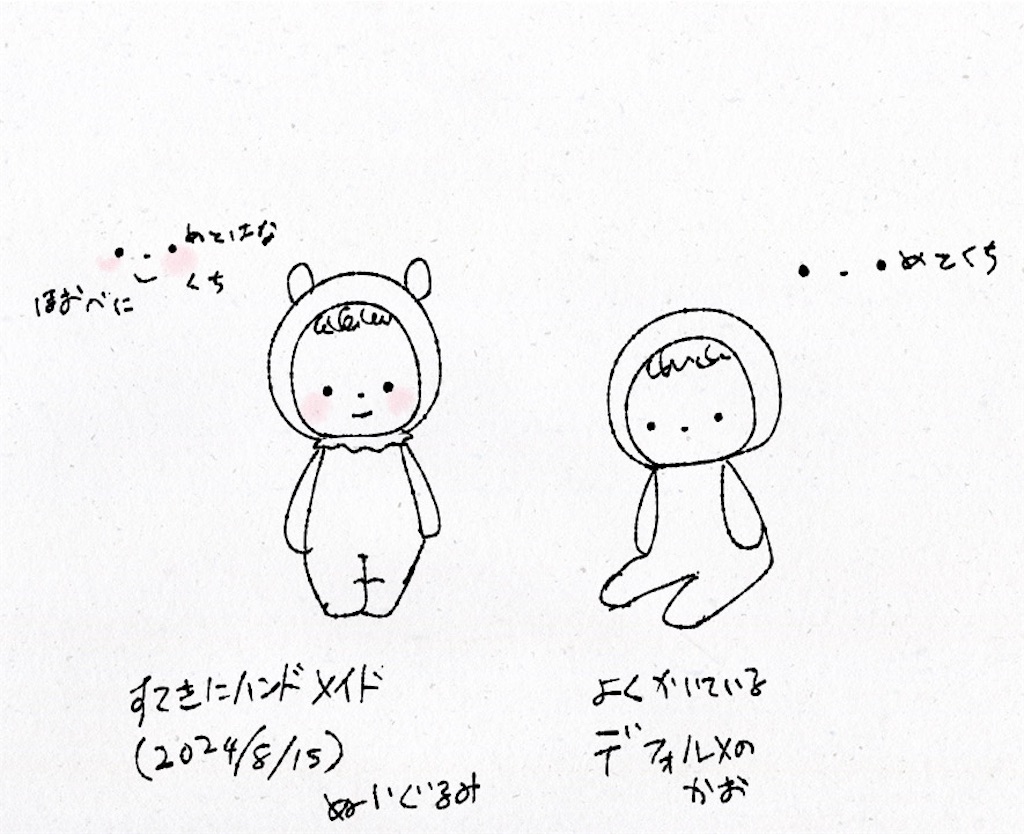 めとはな
くち
ほおべに
めとくち
すてきにハンドメイド
(2024/8/15)
ぬいぐるみ
よくかいている
デフォルメの
かお